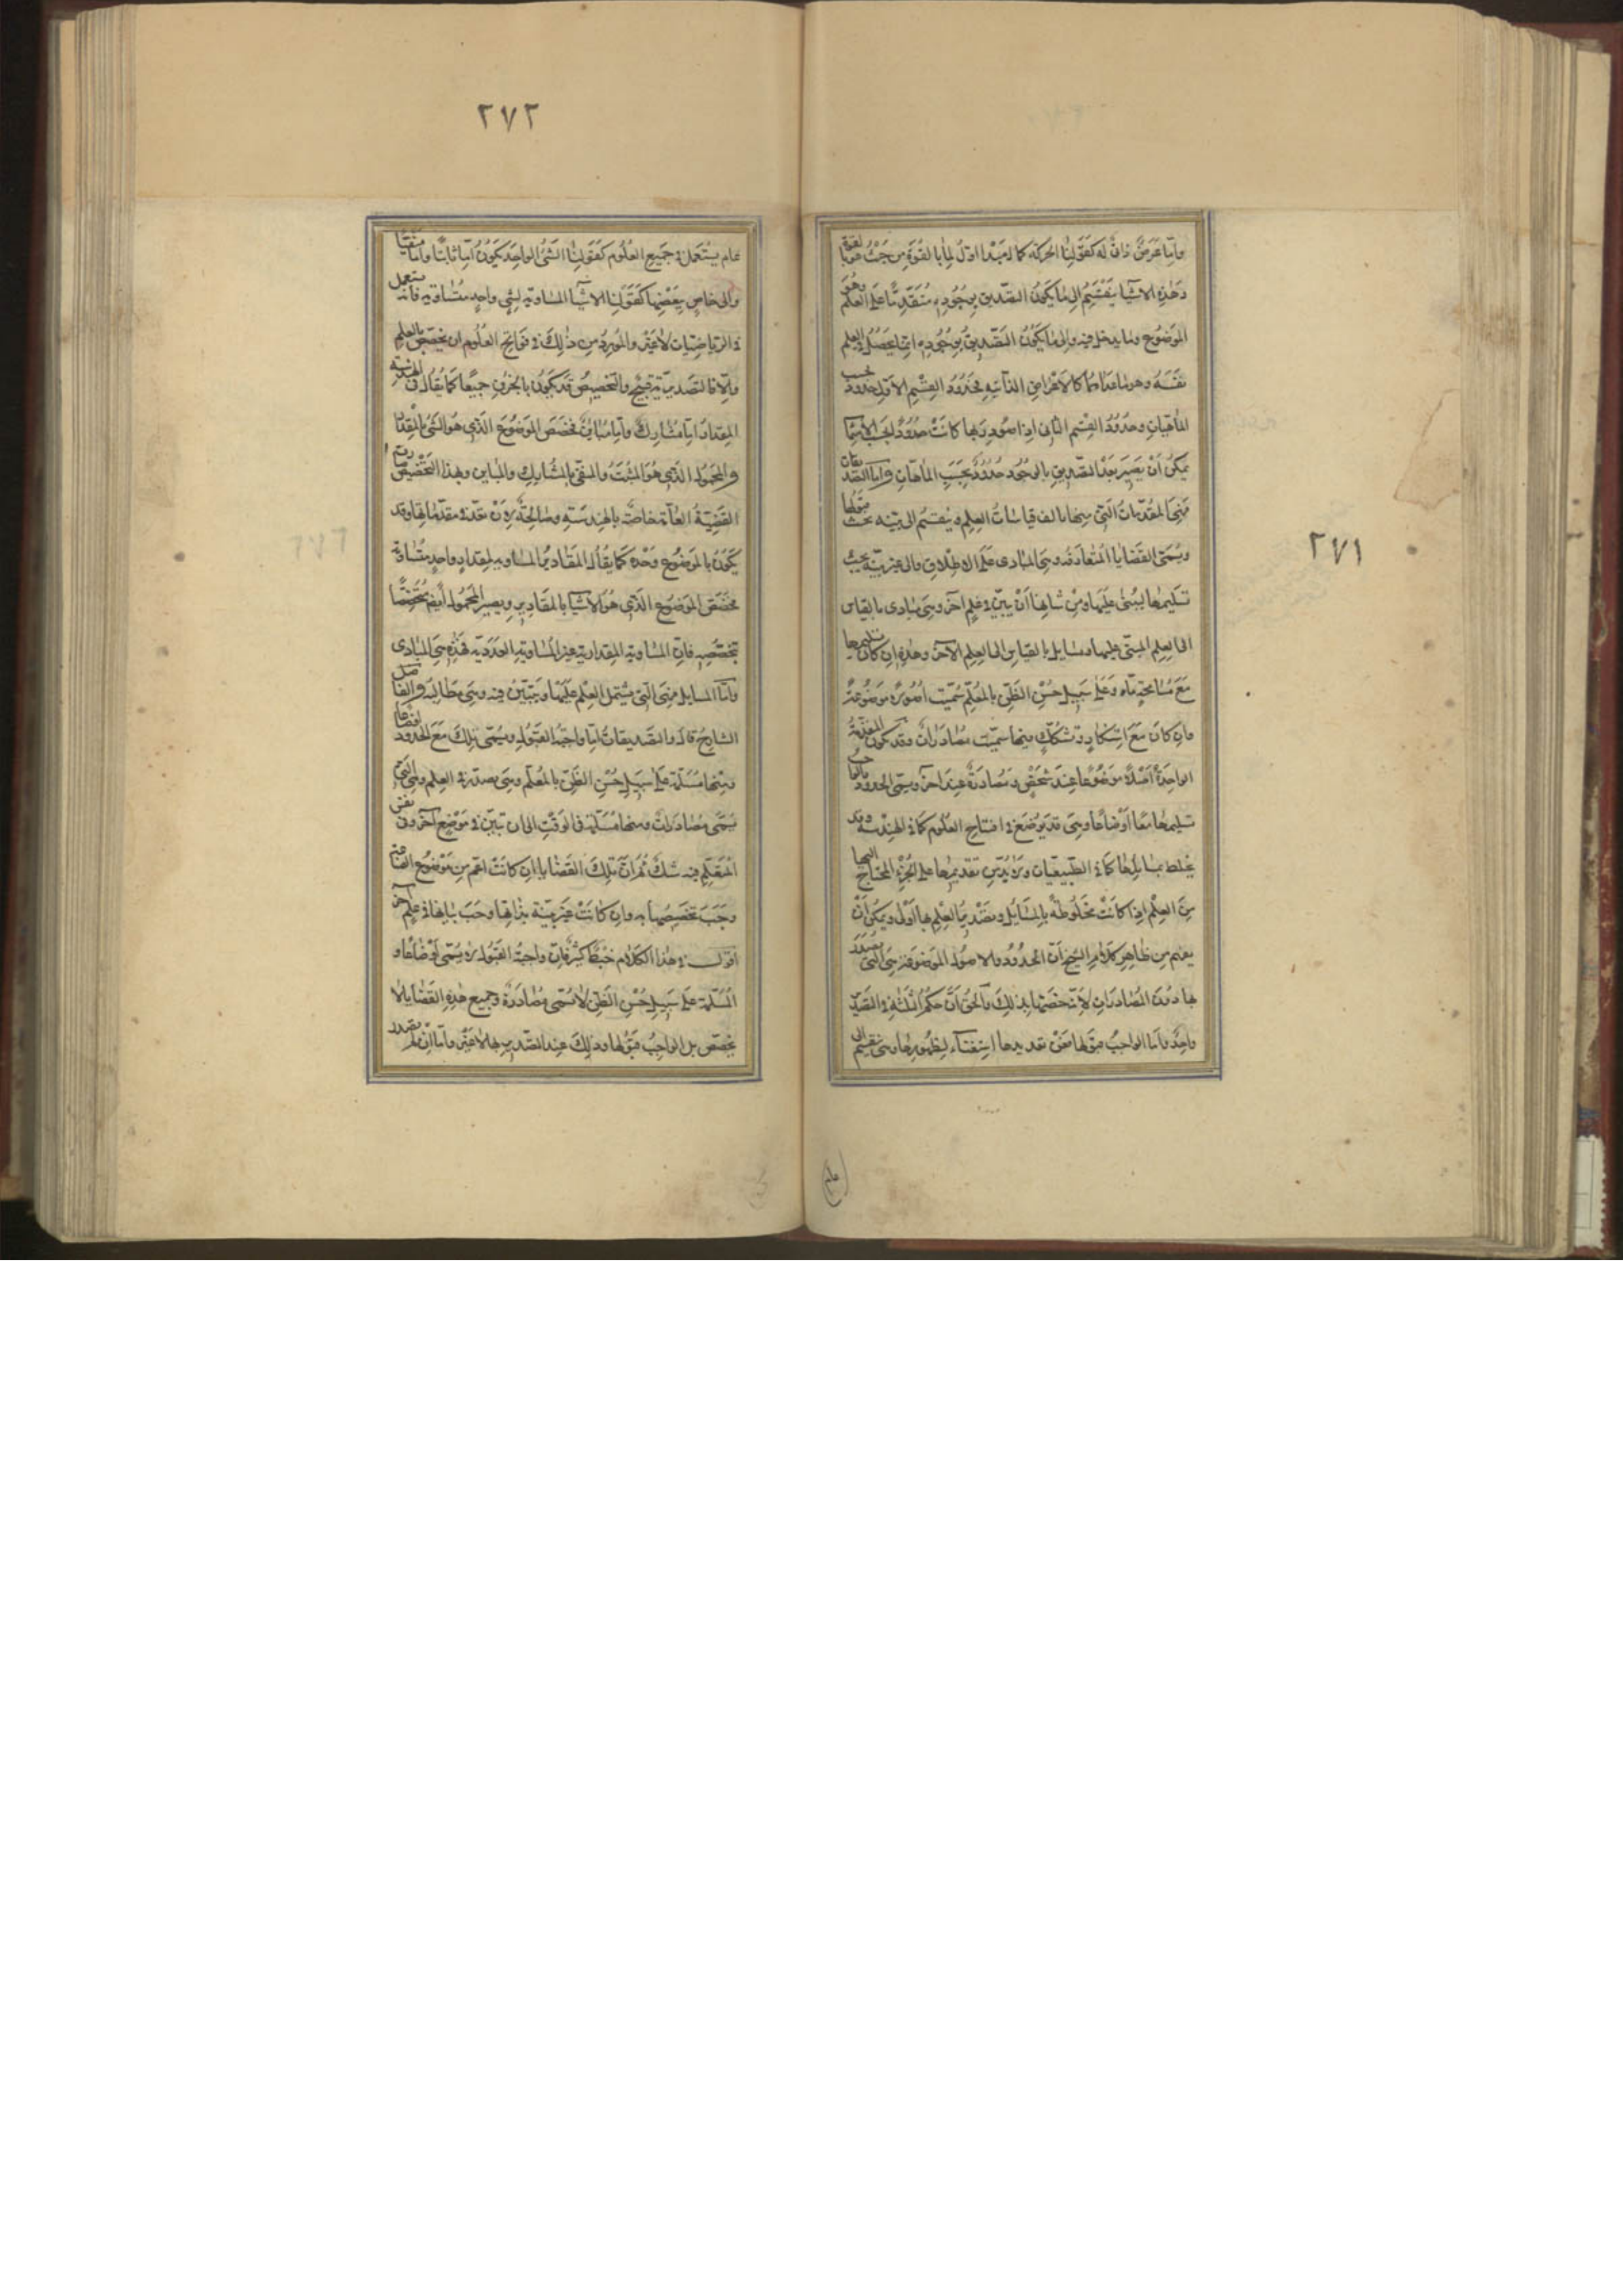 ٢٧١
واما عرض ذاتى له كقولنا الحركة كمال مبدا اول لما بالقوة من حيث هو بالقوة
وهذه الاشيا ينقسم الى ما يكون التصديق بوجوده متقدما على العلم وهو
الموضوع وما يدخل فيه والى ما يكون التصديق بوجوده انما يحصل فى العلم
نفسه وهو ما عداهما كالاعراض الذاتيه فحدود القسم الاول حدود بحسب
الماهيات وحدود القسم الثانى اذا صودر بها كانت حدودا بحسب الاسما
يمكن ان يصير بعد التصديق بالوجود حدودا بحسب الماهيات واما التصديقات
فهى المقدمات التى منها تالف قياسات العلم وينقسم الى بينه يجب قبولها
ويسمى القضايا المتعارفه وهى المبادى على الاطلاق والى غير بينه يجب
تسليمها ليبنى عليها ومن شانها ان يبين فى علم آخر وهى مبادى بالقياس
الى العلم المبنى عليها ومسايل بالقياس الى العلم الآخر وهذه ان كان تسليمها
مع مسامحة ما وعلى سبيل حسن الظن بالمعلم سميت اصولا موضوعة
وان كان مع استنكار وتشكك فيها سميت مصادرات وقد يكون المقدمة
الواحدة اصلا موضوعا عند شخص ومصادرة عند آخر ويسمى الحدود والواجب
تسليمها معا اوضاعا وهى قد توضع فى افتتاح العلوم كما فى الهندسة وقد
يخلط بمسايلها كما فى الطبيعيات ولابد من تقديمها على الجزء المحتاج اليها
من العلم اذا كانت مخلوطة بالمسايل وتصدير العلم بها اولى ويمكن ان
يفهم من ظاهر كلام الشيخ ان الحدود والاصول الموضوعة هى التى يصدر
بها دون المصادرات لانه خصها بذلك والحق ان حكم الثلثة فى التصدير
واحد واما الواجب قبولها فعن تعديدها استغناء لظهورها وهى تنقسم الى
٢٧٢
عام يستعمل فى جميع العلوم كقولنا الشئ الواحد يكون اما ثابتا واما منفيا
والى خاص ببعضها كقولنا الاشيآ المساوية لشى واحد متساوية فانه يستعمل
فى الرياضيات لا غير والمورد من ذلك فى فواتح العلوم ان يخصص بالعلم
والا فالتصدير به قبيح والتخصيص قد يكون بالجزئين جميعا كما يقال فى الهندسة
المقدار اما مشارك واما مباين فخصص الموضوع الذى هو الشئ بالمقدار
والمحمول الذى هو المثبت والمنفى بالمشارك والمباين وبهذا التخصيص
القضية العامة خاصة بالهندسة وصالحة لان تقع فى مقدماتها وقد
يكون بالموضوع وحده كما يقال المقادير المساويه لمقدار واحد متساوية
فخصص الموضوع الذى هو الاشيآ بالمقادير ويصير المحمول ايضا مخصصا
بتخصصه فان المساوية المقدارية غير المساوية العددية فهذه هى المبادى
واما المسايل فهى التى يشتمل العلم عليها ويتبين فيه وهى مطالبه والفاضل
الشارح قال والتصديقات اما واجبة القبول ويسمى تلك مع الحدود اوضاعا
ومنها مسلمة على سبيل حسن الظن بالمعلم وهى يصدر فى العلم وهى التى
يسمى مصادرات ومنها مسلمة فى الوقت الى ان تبين فى موضع آخر وفى نفس
المتعلم فيه شك ثم ان تلك القضايا ان كانت اعم من موضوع الصناعة
وجب تخصيصها به وان كانت غير بينة بذاتها وجب بيانها فى علم آخر
اقول فى هذا الكلام خبط كثير فان واجبة القبول لا يسمى اوضاعا و
المسلمة على سبيل حسن الظن لا يسمى مصادرة وجميع هذه القضايا لا
يخصص بل الواجب قبولها وذلك عند التصدير بها لا غير واما ان لم يصدر